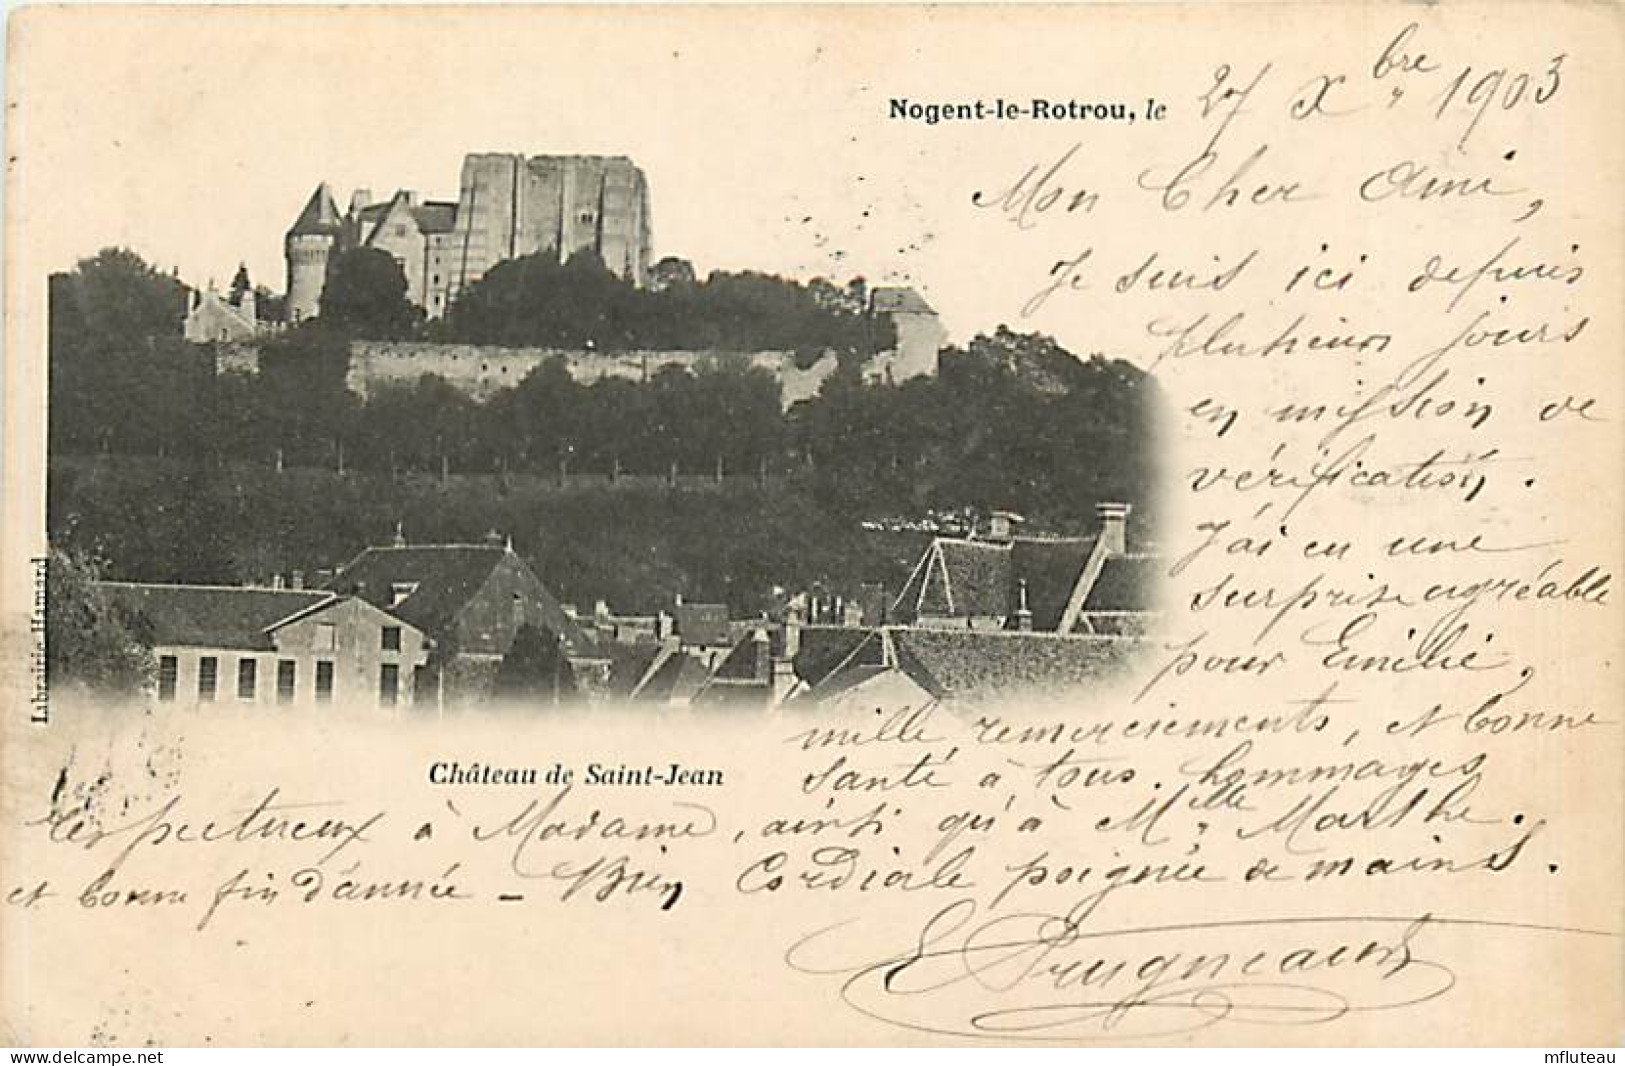 Nogent-le-Rotrou, le 27 Xbre 1903
Mon Cher Ami,
Je suis ici depuis
plusieurs jours
en mission de
vérification.
J'ai eu une
surprise agréable
pour Emélie,
mille remerciements, et bonne
santé à tous. hommages
Château de Saint-Jean
respectueux à Madame, ainsi qu'à Mlle Marthe.
et bonne fin d'année - Bien Cordiale poignée de mains.
E Prugneaud
Librairie Hamard
delcampe.net
mfluteau